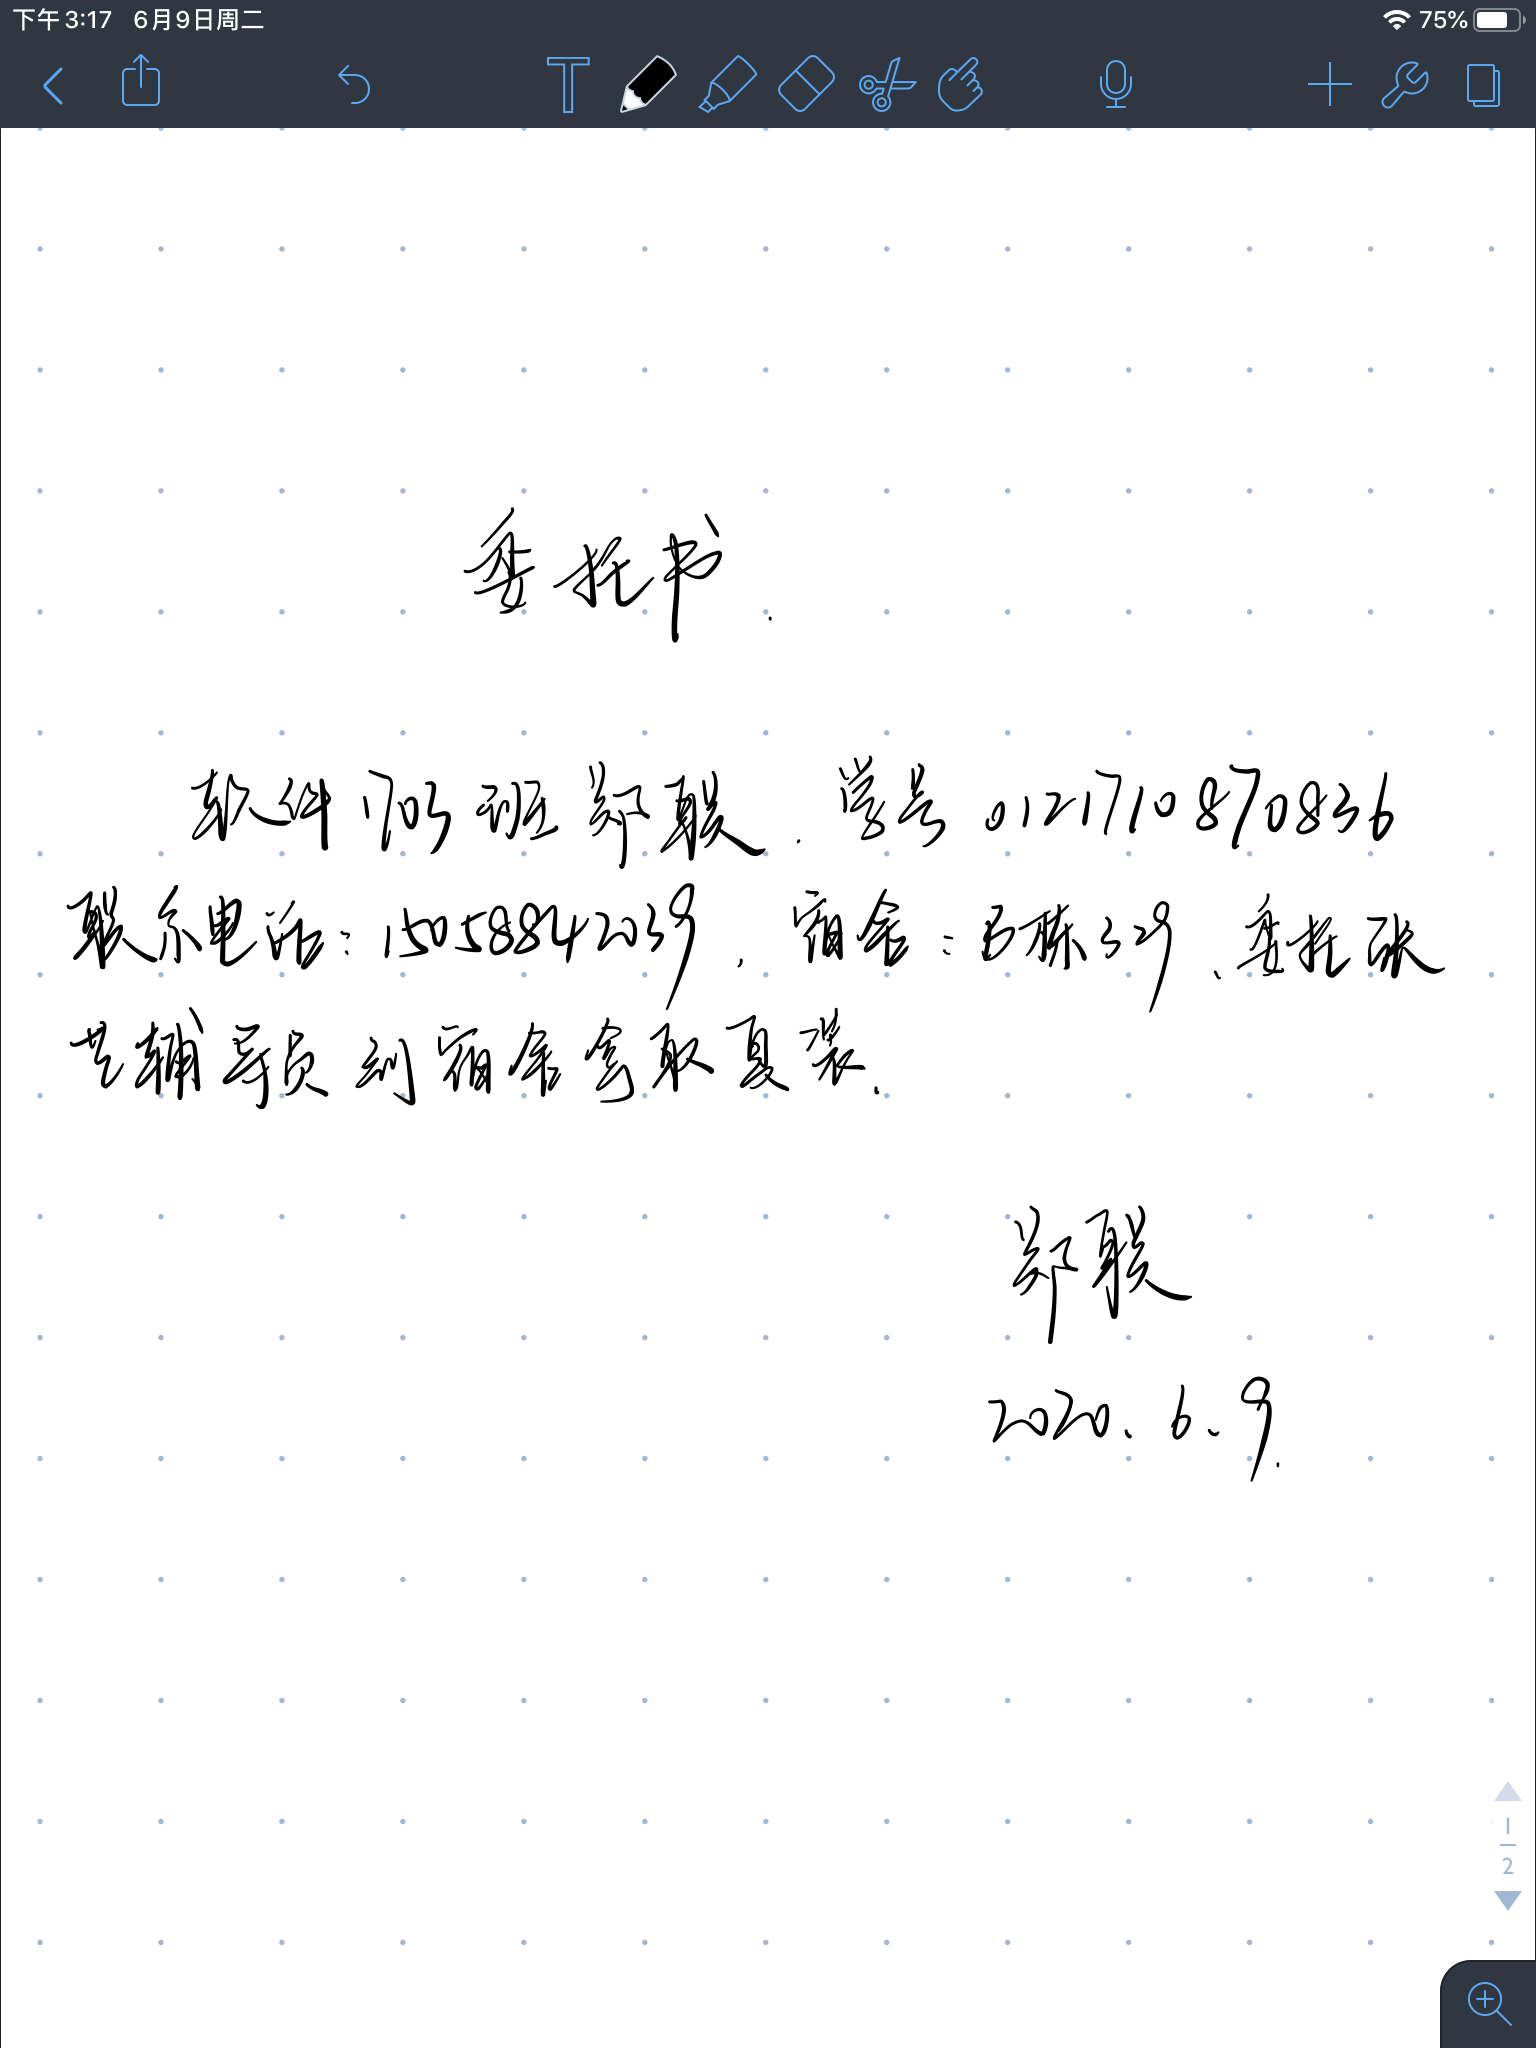 下午3:17 6月9日周二 75%
T
委托书.
软件1703班郑联.学号0121710870836
联系电话:15058842039,宿舍:B栋329、委托张
芸辅导员到宿舍拿取夏装.
郑联
2020.6.9.
1
2